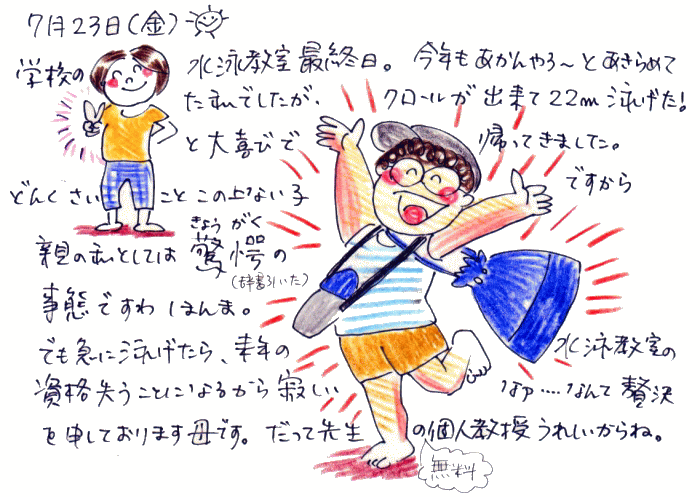 7月23日(金)
学校の 水泳教室最終日。 今年もあかんやろ～とあきらめて
たんでしたが、 クロールが出来て22m泳げた!
と大喜びで 帰ってきました。
どんくさいことこの上ない子 ですから
親の私としては驚愕の
きょうがく
(辞書引いた)
事態ですわほんま。
でも急に泳げたら、来年の 水泳教室の
資格失うことになるから寂しい なァ‥‥なんて贅沢
を申しております母です。だって先生 の個人教授うれしいからね。
無料